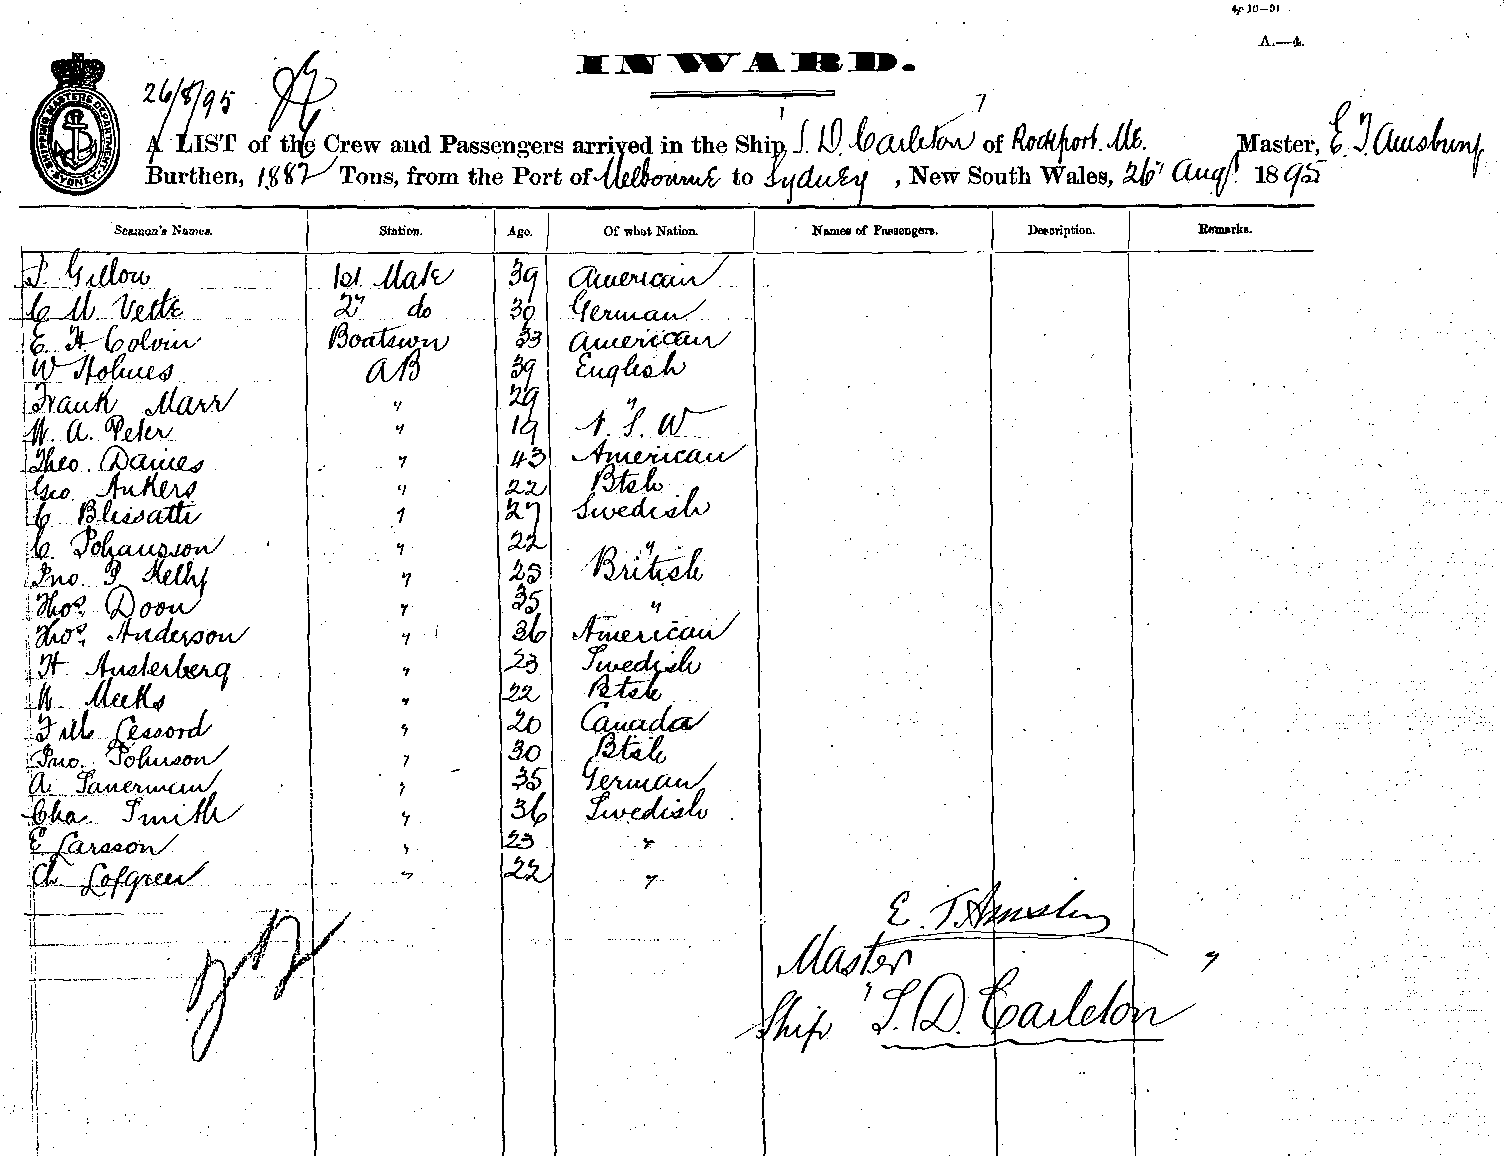 4p 10—91
A.—4.
INWARD.
SHIPPING MASTERS DEPARTMENT SYDNEY
26/8/95
A LIST of the Crew and Passengers arrived in the Ship "S. D. Carleton" of Rockport. Me. Master, E. T. Amsbury
Burthen, 1882 Tons, from the Port of Melbourne to Sydney, New South Wales, 26" Augt 1895
Seamen's Names. Station. Age. Of what Nation. Names of Passengers. Description. Remarks.
S Gillow 1st Mate 39 American
C M Vette 2" do 30 German
E. H Colvin Boatswn 33 American
W Holmes AB 39 English
Frank Marr " 29 "
W. A. Peter " 19 N. S. W
Theo. Daines " 43 American
Geo Ankers " 22 Btsh
C Blissatti " 27 Swedish
C. Johansson " 22 "
Jno. P. Kelly " 25 British
Thos Doon " 35 "
Thos Anderson " 36 American
H Austerberg " 23 Swedish
W. Meeks " 22 Btsh
Lessord " 20 Canada
Jno. Johnson " 30 Btsh
A. Sauerman " 35 German
Cha. Smith " 36 Swedish
E Larsson " 23 "
Ch Lofgreen " 22 "
E. T. Amsbury
Master "
Ship "S. D. Carleton